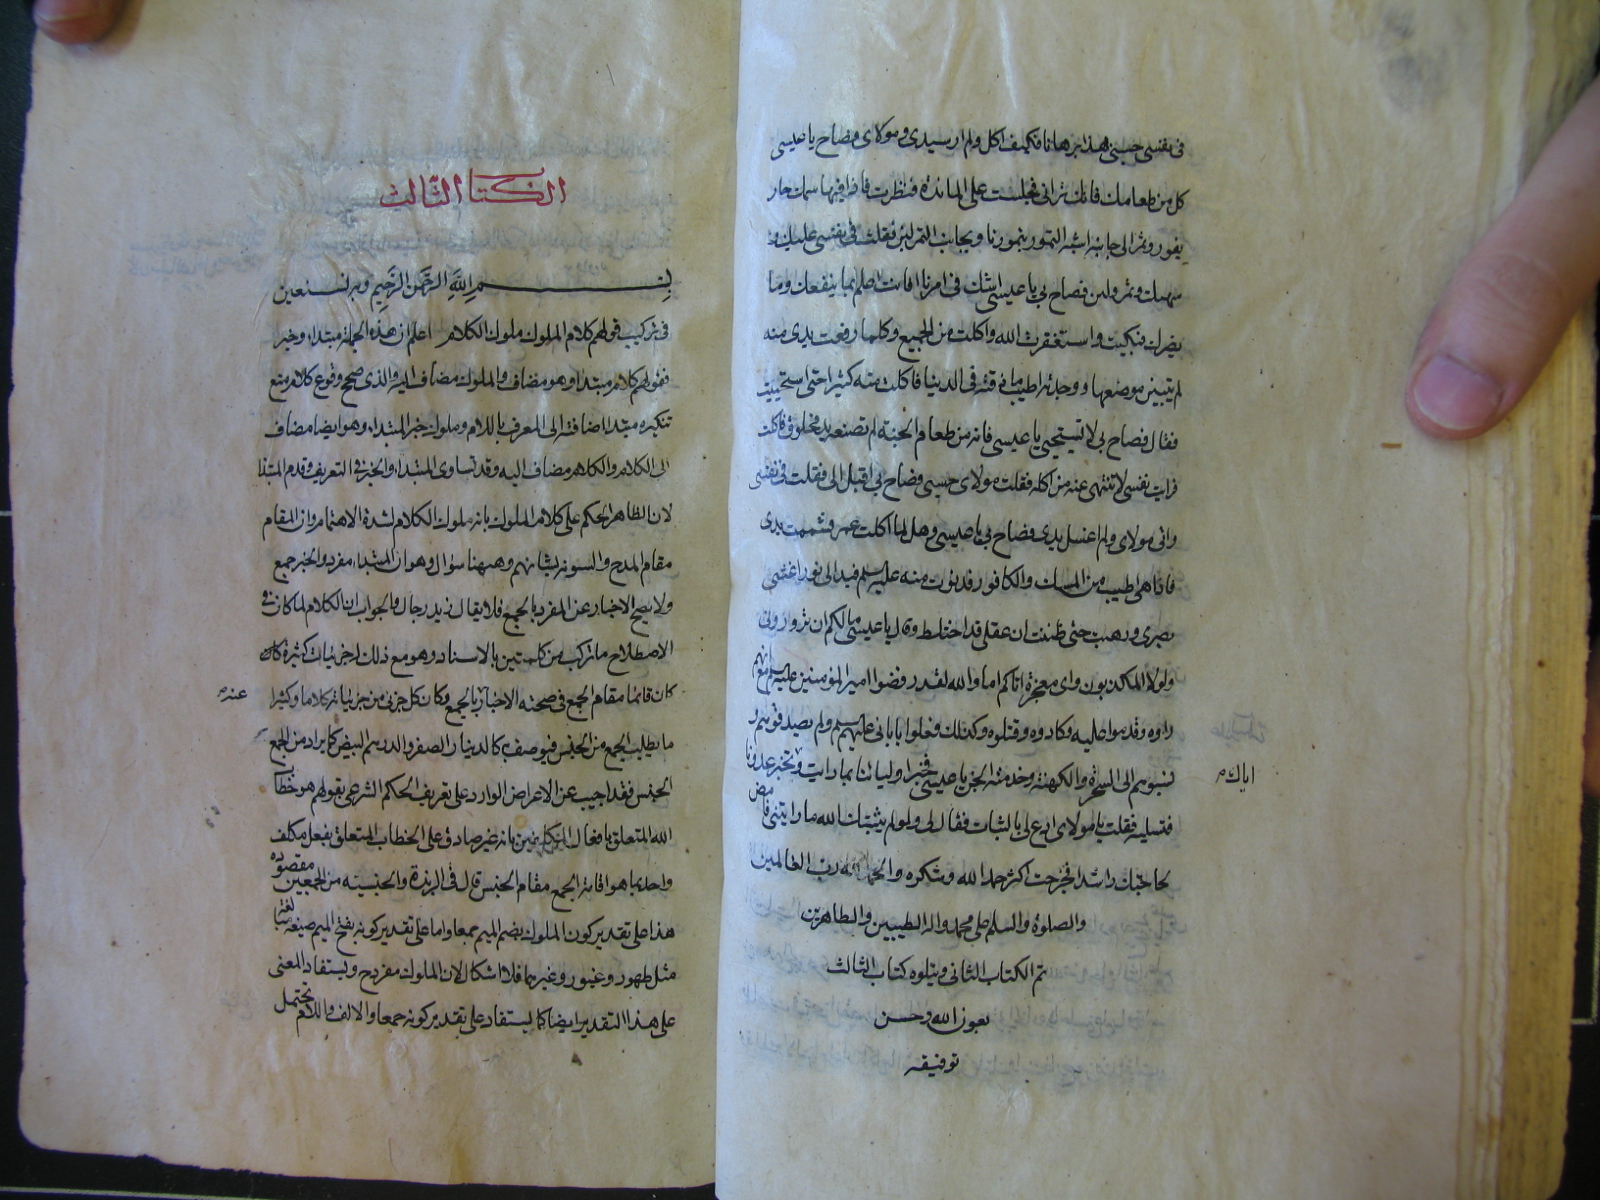 في نفسي حسبي هذا برهانا فكيف اكل ولم ار سيدي ومولاي فصاح يا عيسى
كل من طعامك فانك تراني فجلست على المائدة فنظرت فاذا فيها سمك حار
يفور وتمر الى جانبه اشبه التمور بتمورنا وبجانب التمر لبن فقلت في نفسي عليل و
سمك وتمر ولبن فصاح بي يا عيسى اتشك في امرنا افانت اعلم بما ينفعك وما
يضرك فبكيت واستغفرت الله واكلت من الجميع وكلما رفعت يدي منه
لم يتبين موضعها ووجدته اطيب ما ذقته في الدنيا فاكلت منه كثيرا حتى استحييت
فقال فصاح بي لا تستحيي يا عيسى فانه من طعام الجنة لم تصنعه يد مخلوق فاكلت
فرايت نفسي لا تنتهي عنه من اكله فقلت مولاي حسبي فصاح بي اقبل الي فقلت في نفسي
واتي مولاي ولم اغسل يدي فصاح بي يا عيسى وهل لما اكلت غمر فشممت يدي
فاذا هي اطيب من المسك والكافور فدنوت منه عليه سلم فبدا لي نور اغشى
بصري ورهبت حتى ظننت ان عقلي قد اختلط وقال يا عيسى ما لكم ان تزوروني
ولولا المكذبون واي معجزة اتاكم اما والله لقد رفضوا امير المؤمنين عليه سلم مع انهم
راوه وقدموا عليه وكادوه وقتلوه وكذلك فعلوا بابائي عليهم سلم ولم يصدقوهم و
نسبوهم الى السحرة والكهنة وخدمة الجن يا عيسى فخبر اوليائنا بما رايت وتخبر عدونا
اياك م
فتسلبه فقلت يا مولاي ادع لي بالثبات فقال لي ولو لم يثبتك الله ما رايتني فامض
لحاجتك راشدا فخرجت اكثر حمد الله وشكره والحمد لله رب العالمين
والصلوة والسلم على محمد واله الطيبين والطاهرين
تم الكتاب الثاني ويتلوه كتاب الثالث
بعون الله وحسن
توفيقه
الكتاب الثالث
بسم الله الرحمن الرحيم وبه نستعين
في تركيب قولهم كلام الملوك ملوك الكلام اعلم ان هذه الجملة مبتداء وخبر
فقولهم كلام مبتدا وهو مضاف والملوك مضاف اليه والذي صحح وقوع كلام مع
تنكيره مبتدا اضافته الى المعرف باللام وملوك خبر المبتداء وهو ايضا مضاف
الى الكلام والكلام مضاف اليه وقد تساوى المبتداء والخبر في التعريف وقدم المبتدا
لان الظاهر الحكم على كلام الملوك بانه ملوك الكلام لشدة الاهتمام وان المقام
مقام المدح والتنويه بشانهم وههنا سؤال وهو ان المبتداء مفرد والخبر جمع
ولا يصح الاخبار عن المفرد بالجمع فلا يقال زيد رجال والجواب ان الكلام لما كان في
الاصطلاح ما تركب من كلمتين بالاسناد وهو مع ذلك له جزئيات كثيرة كان
كان قائما مقام الجمع في صحة الاخبار بالجمع وكان كل جزئي من جزئياته كلاما وكثيرا
عنه م
ما يطلب الجمع من الجنس فيوصف به كالدينار الصفر والدرهم البيض كما يراد من الجمع
الجنس فقد اجيب عن الاعراض الوارد على تعريف الحكم الشرعي بقولهم هو خطاب
الله المتعلق بافعال المكلفين بانه غير صادق على الخطاب المتعلق بفعل مكلف
واحد بما هو اقامة الجمع مقام الجنس قال في الزبدة والجنسية من الجمعين مقصودة
هذا على تقدير كون الملوك بضم الميم جمعا واما على تقدير كونه بفتح الميم صيغة مبالغة
مثل طهور وغيور وغيرهما فلا اشكال لان الملوك مفرد ح ويستفاد المعنى
على هذا التقدير ايضا كما يستفاد على تقدير كونه جمعا والالف واللام تحتمل